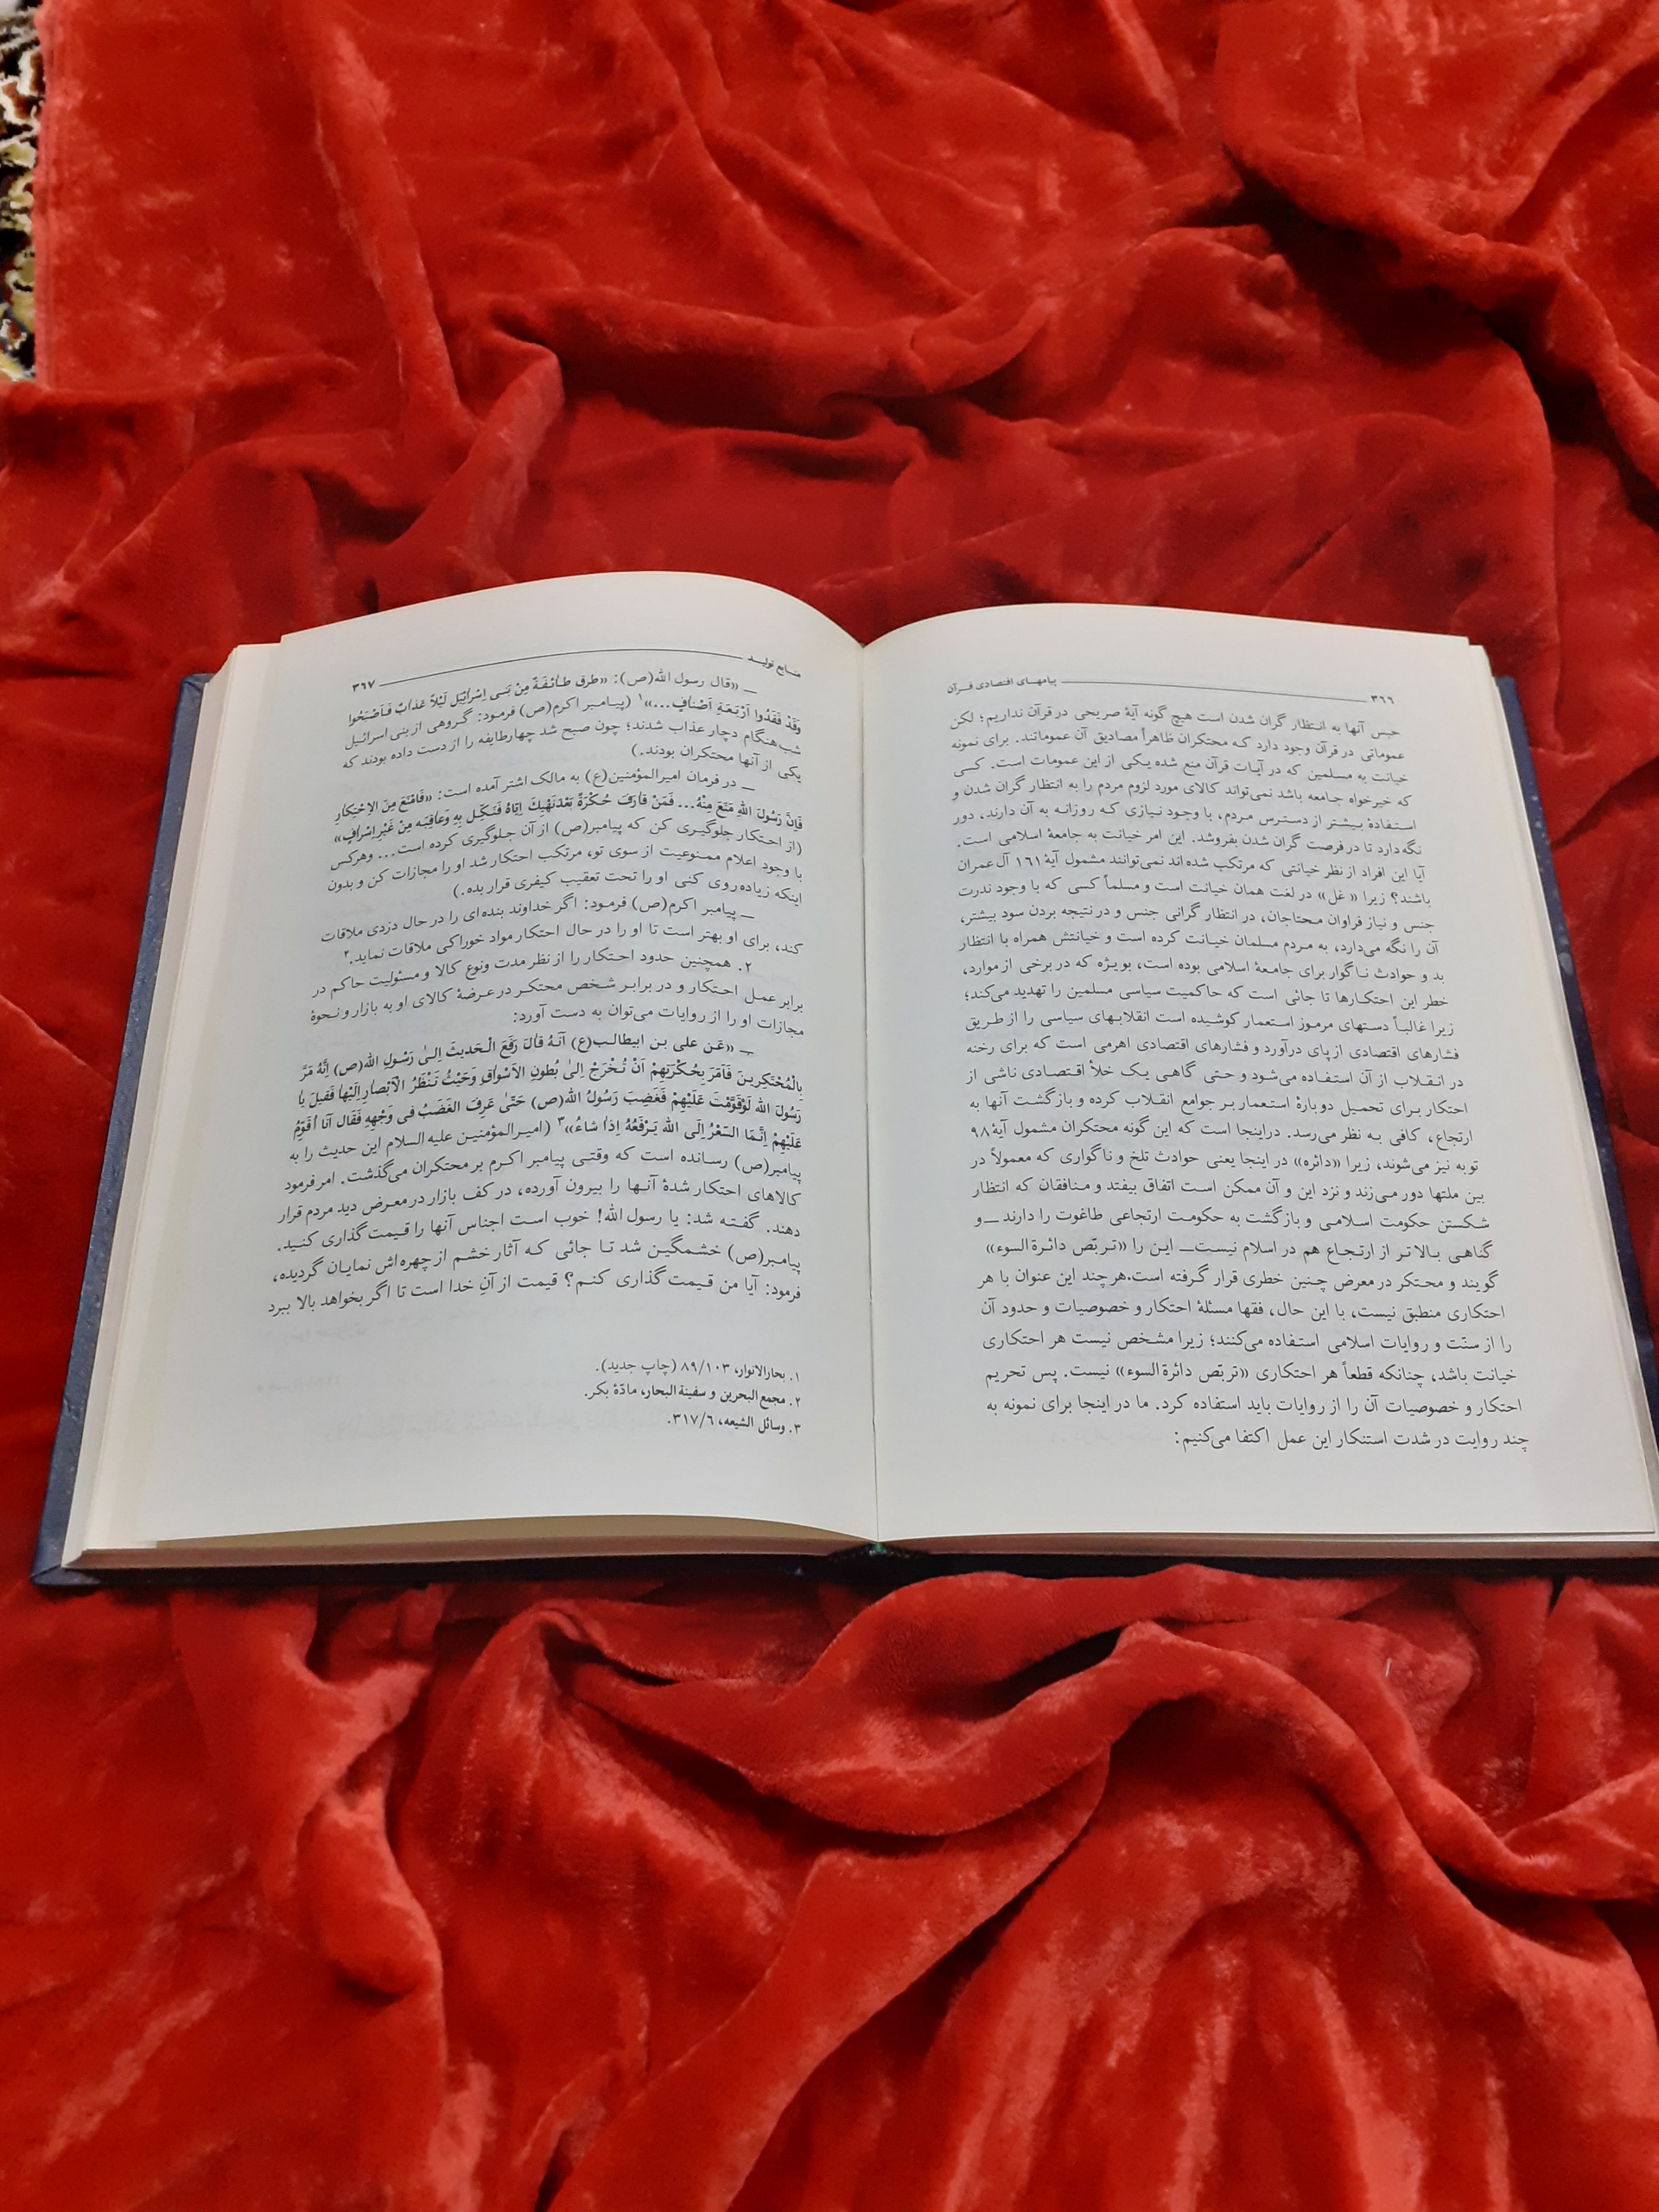 ٣٦٦ پیامهـای اقتصادی قـرآن
حبس آنها به انتظار گران شدن است هیچ گونه آیهٔ صریحی در قرآن نداریم؛ لکن
عموماتی در قرآن وجود دارد کـه محتکران ظاهراً مصادیق آن عموماتند. برای نمونه
خیانت به مسلمین که در آیـات قرآن منع شده یکـی از این عمومات است. کسـی
که خیرخواه جـامعه باشد نمی‌تواند کالای مورد لزوم مردم را به انتظار گران شدن و
استـفادهٔ بیـشتر از دستـرس مردم، با وجود نیـازی کـه روزانـه به آن دارند، دور
نگه دارد تا در فرصت گران شدن بفروشد. این امر خیانت به جامعهٔ اسلامی است.
آیا این افراد از نظر خیانتی که مرتکب شده‌اند نمی‌توانند مشمول آیهٔ ١٦١ آل عمران
باشند؟ زیرا « غل» در لغت همان خیانت است و مسلماً کسی که با وجود ندرت
جنس و نیاز فراوان محتاجان، در انتظار گرانی جنس و در نتیجه بردن سود بیشتر،
آن را نگه می‌دارد، به مـردم مسلمان خیـانت کرده است و خیانتش همراه با انتظار
بد و حوادث نـاگوار برای جامعهٔ اسلامی بوده است، بویـژه که در برخی از موارد،
خطر این احتکـارها تا جائی است که حاکمیت سیاسی مسلمین را تهدید می‌کند؛
زیرا غالبـاً دستهای مرموز استعمار کوشیده است انقلابـهای سیاسی را از طـریق
فشارهای اقتصادی از پای درآورد و فشارهای اقتصادی اهرمی است که برای رخنه
در انـقـلاب از آن استـفاده می‌شود و حتـی گاهـی یـک خلأ اقـتصـادی ناشی از
احتکار بـرای تحمیـل دوبارهٔ استعمار بـر جوامع انقـلاب کرده و بازگشت آنها به
ارتجاع، کافی بـه نظر می‌رسد. در اینجا است که این گونه محتکران مشمول آیهٔ ٩٨
توبه نیز می‌شوند، زیرا «دائره» در اینجا یعنی حوادث تلخ و ناگواری که معمولاً در
بین ملتها دور مـی‌زند و نزد این و آن ممکن اسـت اتفاق بیفتد و مـنافقان که انتظار
شکستن حکومت اسـلامـی و بازگشت به حکومـت ارتجاعی طاغوت را دارند ــ و
گناهـی بـالا تـر از ارتـجاع هم در اسلام نیسـت ــ ایـن را «تـربّص دائـرة السوء»
گویند و محـتکر در معرض چـنین خطری قرار گـرفته است.هر چند این عنوان با هر
احتکاری منطبق نیست، با این حال، فقها مسئلهٔ احتکار و خصوصیات و حدود آن
را از سنّت و روایات اسلامی استـفاده می‌کنند؛ زیرا مشخص نیست هر احتکاری
خیانت باشد، چنانکه قطعاً هر احتکاری «تربّص دائرة السوء» نیست. پس تحریم
احتکار و خصوصیات آن را از روایات باید استفاده کرد. ما در اینجا برای نمونه به
چند روایت در شدت استنکار این عمل اکتفا می‌کنیم:
منـابع تولیـد ٣٦٧
ــ «قال رسول الله(ص): «طرق طـائـفَةٌ مِنْ بَنـی اِسْرائیل لَیْلاً عَذابٌ فَـاَصْبَحُوا
وَقَدْ فَقَدُوا اَرْبَـعَةِ اَصْنافٍ...»١ (پیـامبر اکرم(ص) فرمـود: گـروهی از بنی اسرائیل
شب‌هنگام دچار عذاب شدند؛ چون صبح شد چهارطایفه را از دست داده بودند که
یکی از آنها محتکران بودند.)
ــ در فرمان امیرالمؤمنین(ع) به مالک اشتر آمده است: «فَامْنَعْ مِنَ الاِحْتِکارِ
فَاِنَّ رَسُولَ اللهِ مَنَعَ مِنْهُ... فَمَنْ قارَفَ حُکْرَةً بَعْدَ نَهْیِکَ اِیّاهُ فَنَکِّـل بِهِ وَعاقِبَـه مِنْ غَیْرِ اِسْرافٍ»
(از احتکار جلوگیـری کن که پیامبر(ص) از آن جلوگیری کرده است... و هرکس
با وجود اعلام ممـنوعیت از سوی تو، مرتکب احتکار شد او را مجازات کن و بدون
اینکه زیاده‌روی کنی او را تحت تعقیب کیفری قرار بده.)
ــ پیامبر اکرم(ص) فرمـود: اگر خداوند بنده‌ای را در حال دزدی ملاقات
کند، برای او بهتر است تا او را در حال احتکار مواد خوراکی ملاقات نماید.٢
٢. همچنین حدود احـتکار را از نظر مدت و نوع کالا و مسئولیت حاکم در
برابر عمـل احـتکار و در برابـر شـخص محتکـر در عـرضهٔ کالای او به بازار و نـحوهٔ
مجازات او را از روایات می‌توان به دست آورد:
ــ «عَـن علی بـن ابیطالـب(ع) اَنَّـهُ قالَ رَفَعَ الْـحَدیثَ اِلـیٰ رَسُـولِ الله(ص) اِنَّهُ مَرَّ
بِالْمُحْتَکِریـنَ فَاَمَرَ بِحُکْرَتِهِمْ اَنْ تُـخْرَجَ اِلیٰ بُطُونِ الاَسْواقِ وَحَیْثُ تَـنْظُرُ الْاَبْصارِ اِلَیْها فَقیلَ یا
رَسُولَ الله لَوْقَوَّمْتَ عَلَیْهِمْ فَغَضِبَ رَسُولُ الله(ص) حَتّیٰ عَرِفَ الغَضَبُ فی وَجْهِهِ فَقال اَنَا اُقَوِّمُ
عَلَیْهِمْ اِنَّـمَا السِّعْرُ اِلَی الله یَـرْفَعُهُ اِذا شاءُ»٣ (امیـرالمؤمنیـن علیه السلام این حدیث را به
پیامبر(ص) رسـانده است که وقتـی پیامبر اکـرم بر محتکران می‌گذشت. امر فرمود
کالاهای احتکار شدهٔ آنـها را بیرون آورده، در کف بازار در معـرض دید مردم قرار
دهند. گفـته شد: یا رسول الله! خوب اسـت اجناس آنها را قـیمت گذاری کنـید.
پیامبر(ص) خشـمگیـن شد تـا جائی کـه آثار خشم از چهره‌اش نمایـان گردیده،
فرمود: آیا من قـیمت گذاری کنـم؟ قیمت از آنِ خدا است تا اگر بخواهد بالا ببرد
١. بحارالانوار، ٨٩/١٠٣ (چاپ جدید).
٢. مجمع البحرین و سفینة البحار، مادّهٔ بکر.
٣. وسائل الشیعه، ٣١٧/٦.